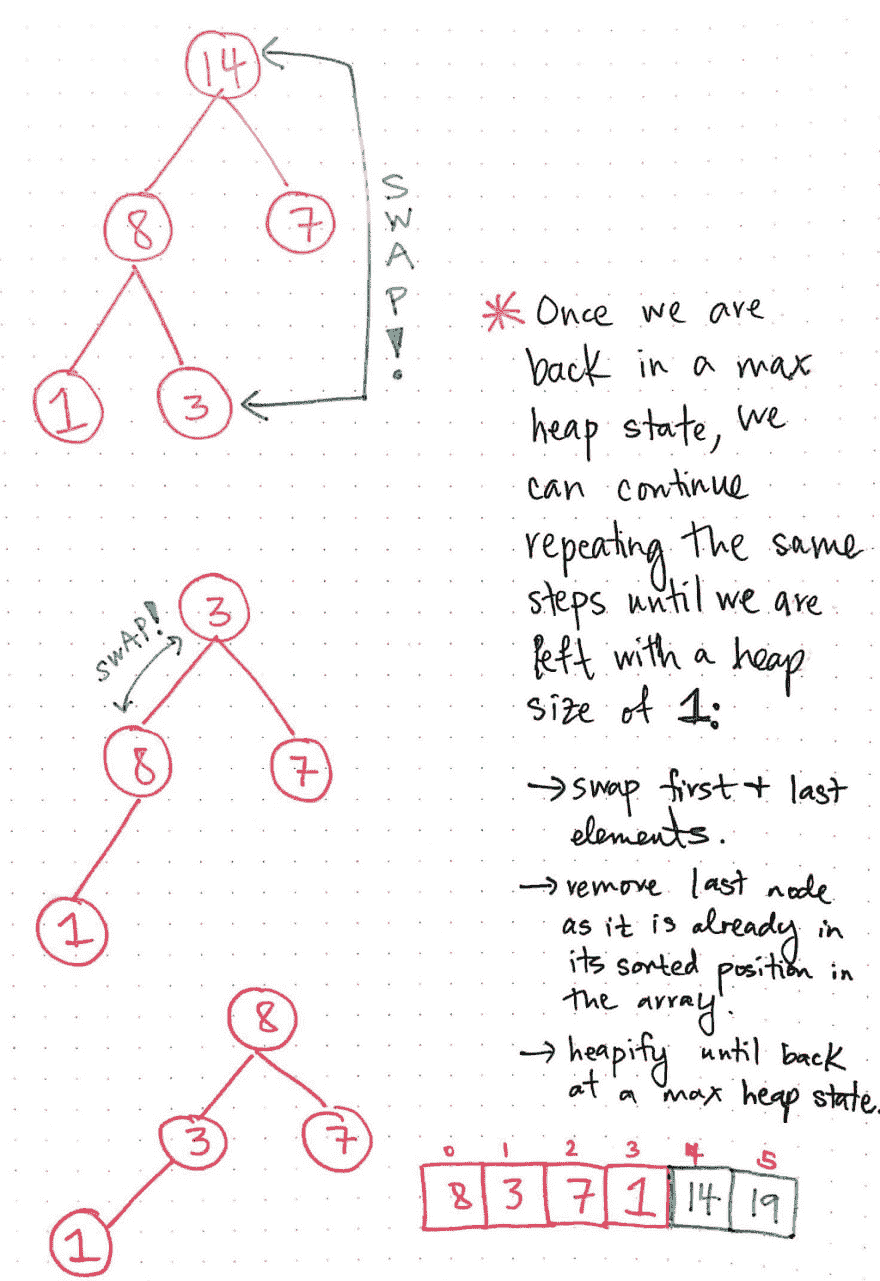 14
SWAP!
8
7
1
3
* Once we are
back in a max
heap state, we
can continue
repeating the same
steps until we are
left with a heap
size of 1:
→ swap first + last
elements.
→ remove last node
as it is already in
its sorted position in
the array.
→ heapify until back
at a max heap state.
3
SWAP!
8
7
1
8
3
7
1
0 1 2 3 4 5
8 3 7 1 14 19